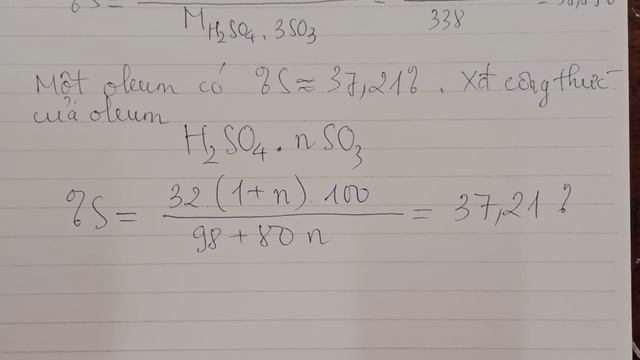 %S =
M H₂SO₄.3SO₃
338
Một oleum có %S ≈ 37,21%. Xđ công thức
của oleum
H₂SO₄.nSO₃
%S = 32.(1+n).100 / 98+80n = 37,21%